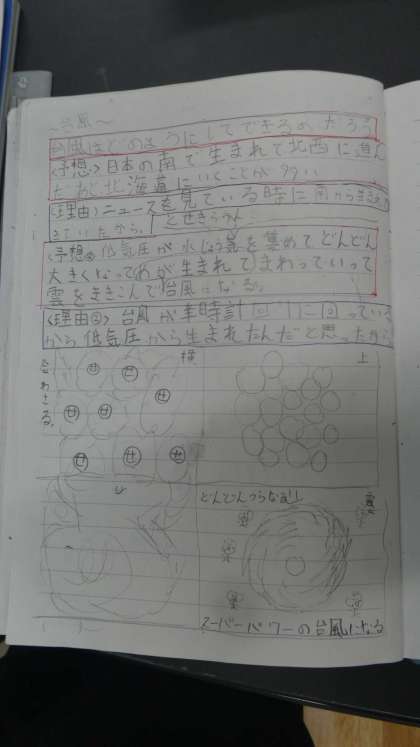 〜台風〜
台風はどのようにしてできるのだろう
〈予想〉日本の南で生まれて北西に進ん
だあと北海道にいくことが多い
〈理由〉ニュースを見ている時に南から
きていたから。
〈予想②〉低気圧が水じょう気を集めてどんどん
大きくなって が生まれてまわっていって
雲をまきこんで台風になる。
〈理由②〉台風が半時計回りに回っている
から低気圧から生まれたんだと思ったから
横
上
合わさる。
どんどんつらなる!!
雲
スーパーパワーの台風になる